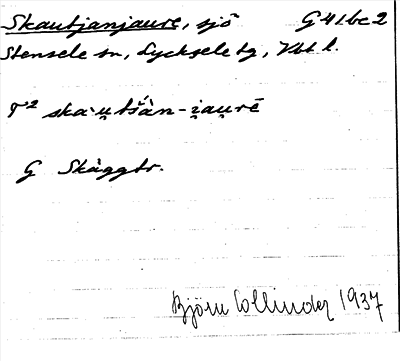 Skautjanjaure, sjö G 41bc2
Stensele sn, Lycksele tg, Vbt l.
T² ska·u̯tšàn-i̯au̯rē
G Skäggtr.
Björn Collinder 1937